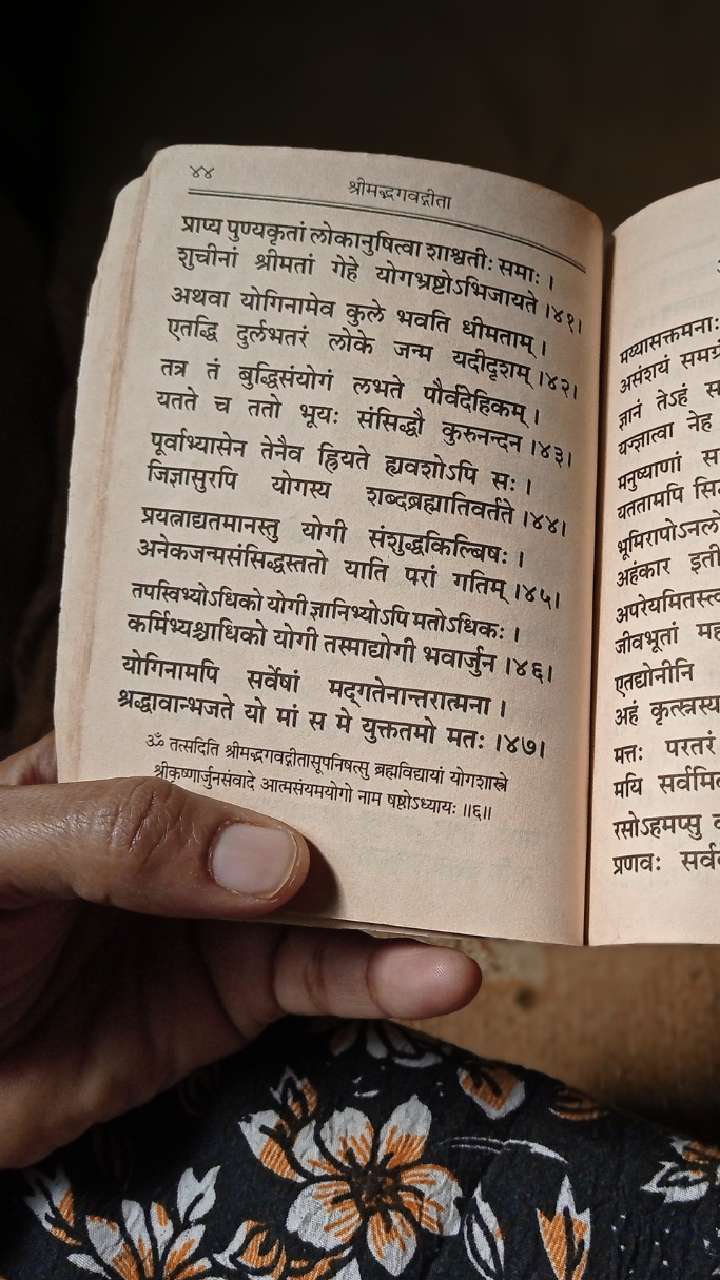 ४४
श्रीमद्भगवद्गीता
प्राप्य पुण्यकृतां लोकानुषित्वा शाश्वतीः समाः ।
शुचीनां श्रीमतां गेहे योगभ्रष्टोऽभिजायते ।४१।
अथवा योगिनामेव कुले भवति धीमताम् ।
एतद्धि दुर्लभतरं लोके जन्म यदीदृशम् ।४२।
तत्र तं बुद्धिसंयोगं लभते पौर्वदेहिकम् ।
यतते च ततो भूयः संसिद्धौ कुरुनन्दन ।४३।
पूर्वाभ्यासेन तेनैव ह्रियते ह्यवशोऽपि सः ।
जिज्ञासुरपि योगस्य शब्दब्रह्मातिवर्तते ।४४।
प्रयत्नाद्यतमानस्तु योगी संशुद्धकिल्बिषः ।
अनेकजन्मसंसिद्धस्ततो याति परां गतिम् ।४५।
तपस्विभ्योऽधिको योगी ज्ञानिभ्योऽपि मतोऽधिकः ।
कर्मिभ्यश्चाधिको योगी तस्माद्योगी भवार्जुन ।४६।
योगिनामपि सर्वेषां मद्‌गतेनान्तरात्मना ।
श्रद्धावान्भजते यो मां स मे युक्ततमो मतः ।४७।
ॐ तत्सदिति श्रीमद्भगवद्गीतासूपनिषत्सु ब्रह्मविद्यायां योगशास्त्रे
श्रीकृष्णार्जुनसंवादे आत्मसंयमयोगो नाम षष्ठोऽध्यायः ॥६॥
मय्यासक्तमनाः
असंशयं समग्रं
ज्ञानं तेऽहं
यज्ज्ञात्वा नेह
मनुष्याणां
यततामपि
भूमिरापोऽनलो
अहंकार
अपरेयमितस्त्व
जीवभूतां
एतद्योनीनि
अहं कृत्स्नस्य
मत्तः परतरं
मयि
रसोऽहमप्सु
प्रणवः